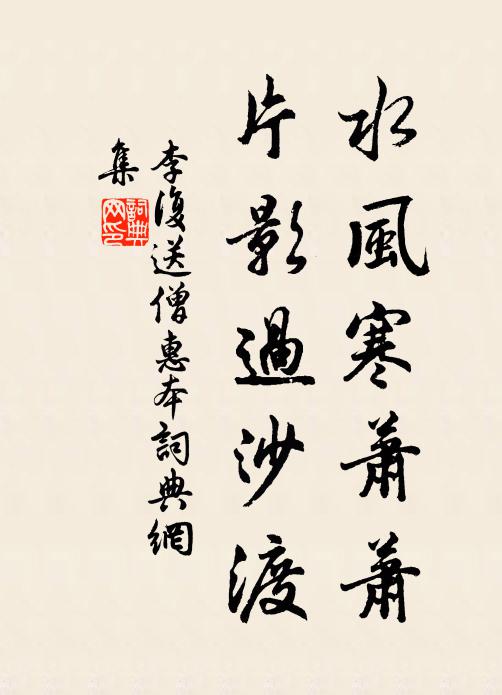 水風寒蕭蕭
片影過沙渡
李復送僧惠本詞典網
集
詞典
网印